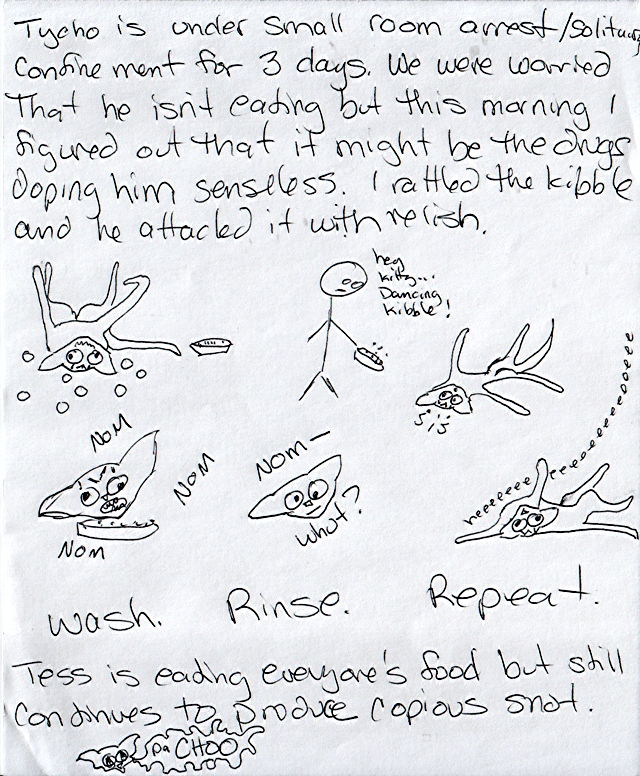 Tycho is under small room arrest/solitary
confinement for 3 days. We were worried
that he isn't eating but this morning I
figured out that it might be the drugs
doping him senseless. I rattled the kibble
and he attacked it with relish.
hey
kitty...
Dancing
kibble!
NOM
NOM
NOM
NOM—
what?
heeeeeeeeeeeeeeeeeeeeeeee
Wash. Rinse. Repeat.
Tess is eating everyone's food but still
continues to produce copious snot.
pa CHOO